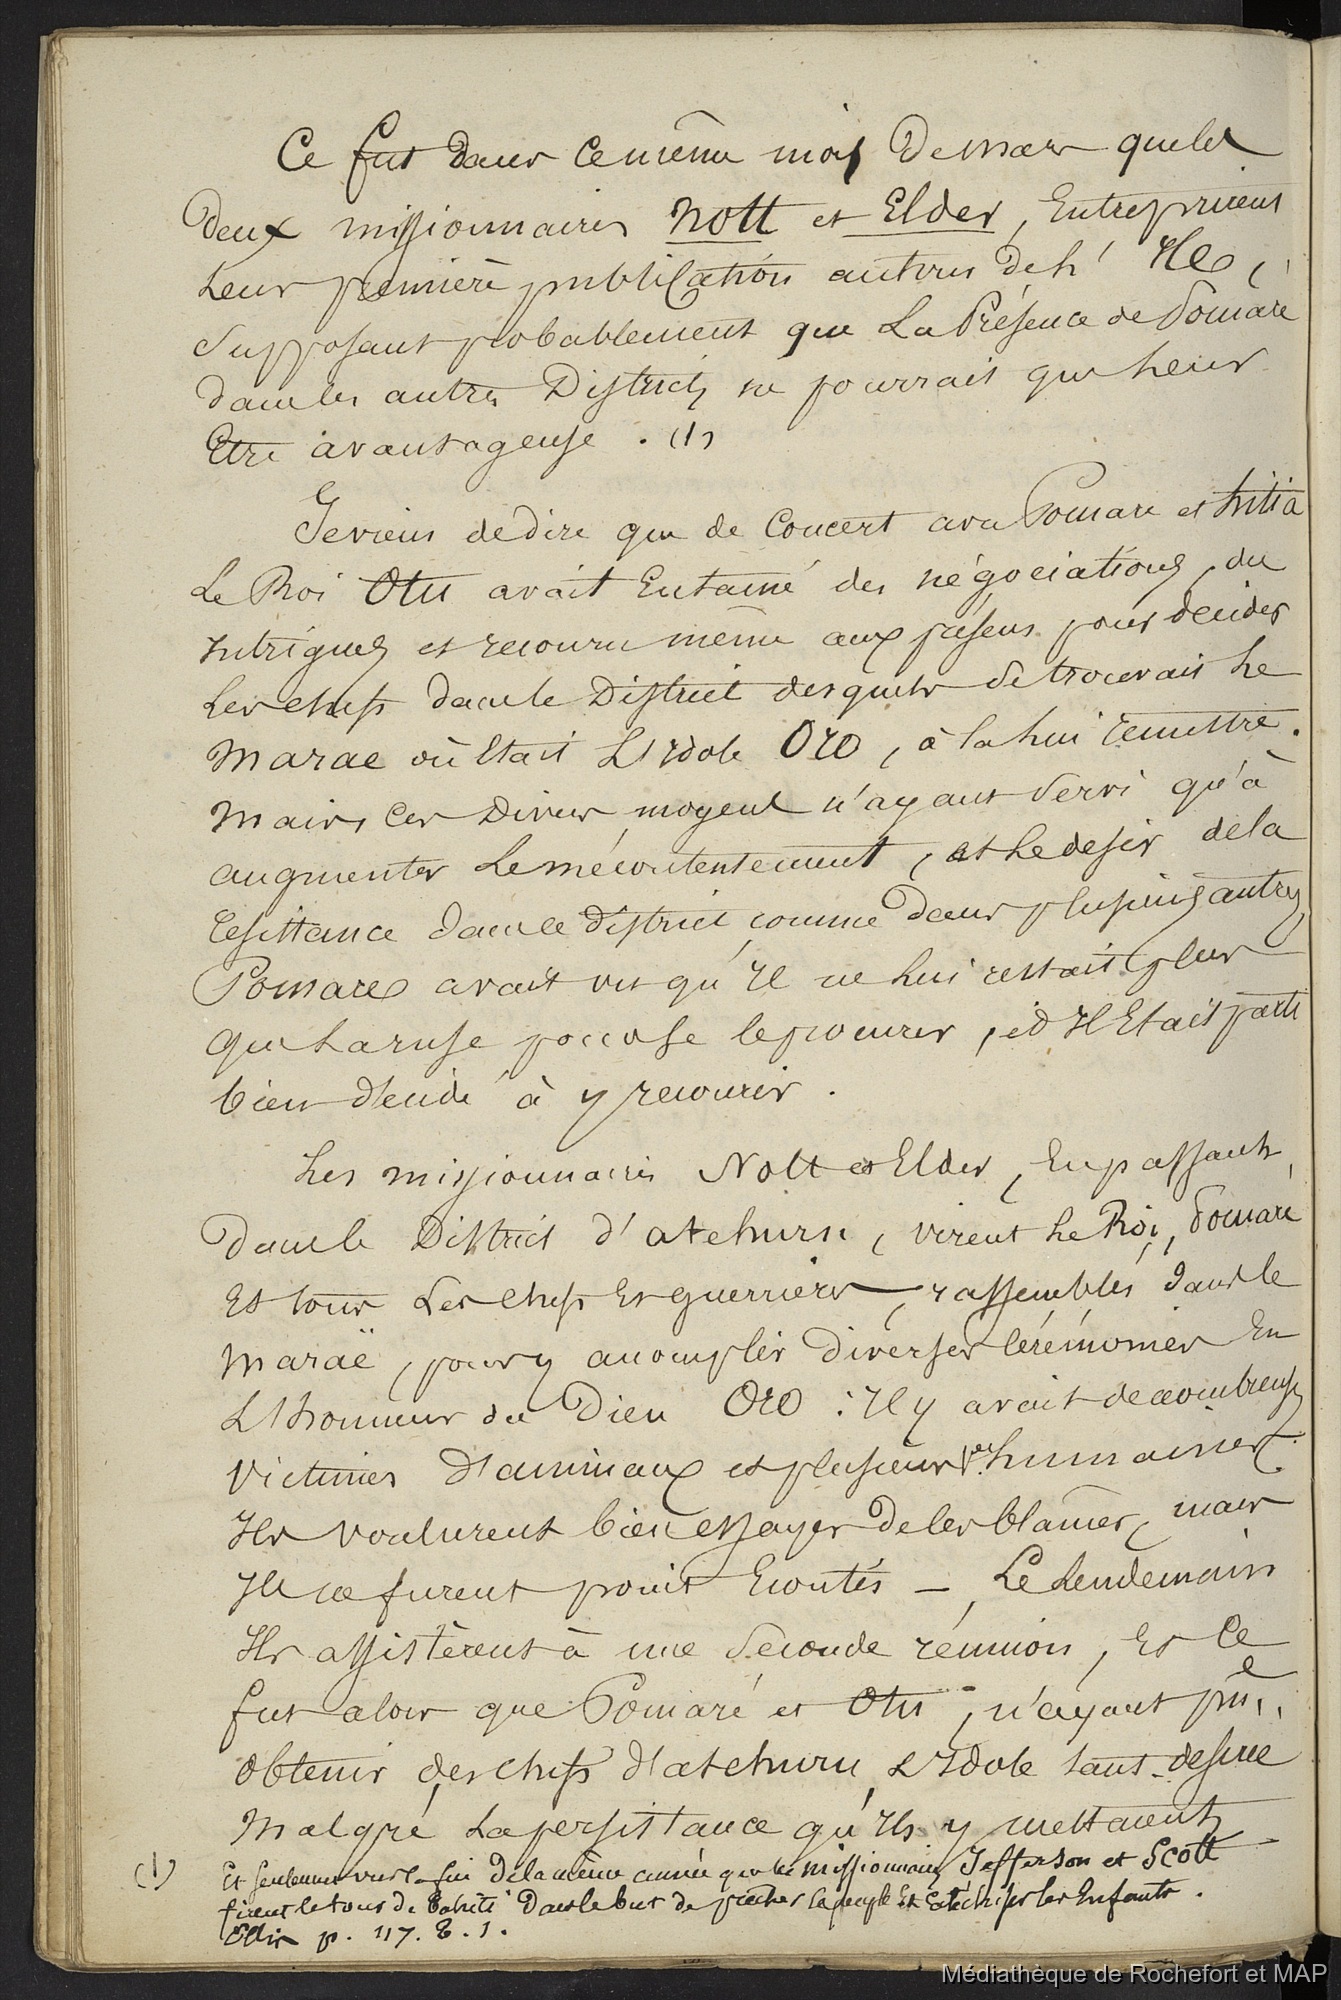 Ce fut dans ce même mois de mars que les
deux missionnaires Nott et Elder, Entreprirent
Leur première publication autour de l' Ile,
Supposant probablement que La Présence de Pomare
dans les autres Districts ne pourrait que leur
Etre avantageuse . (1)
Je viens de dire que de Concert avec Pomare et hitia
Le Roi Otu avait Entamé des négociations, des
intrigues et recouru même aux présens pour decider
Les chefs dans le District desquels se trouvait le
Marae où Etait L'Idole Oro, à la lui remettre.
Mais Ces Divers moyens n'ayant servi qu'à
augmenter Le mécontentement, et le desir de la
resistance dans ce district comme dans plusieurs autres,
Pomare avait vu qu'il ne lui restait plus
que la ruse pour se le procurer, et Il Etait parti
bien décidé à y recourir .
Les missionnaires Nott et Elder, En passant
dans le District d'atehuru, virent le Roi, Pomaré
Et tous Les chefs Et guerriers, rassemblés dans le
Maraë, pour y accomplir diverses Cérémonies En
L'honneur du Dieu Oro : Il y avait de nombreuses
Victimes d'animaux et plusieurs humaines.
Ils voulurent bien essayer de les blamer, mais
Ils ne furent point Ecoutés — Le Lendemain
Ils assistèrent à une Seconde réunion, Et Ce
fut alors que Pomaré et Otu, n'ayant pu
Obtenir des chefs d'atehuru L'Idole tant desirée
Malgré La persistance qu'Ils y mettaient,
(1) Et seulement vers la fin de la même année que les missionnaires Jefferson et Scott
firent le tour de Tahiti dans le but de prêcher le peuple Et catéchiser les Enfants .
Ellis p. 117. t. 1.
Médiathèque de Rochefort et MAP